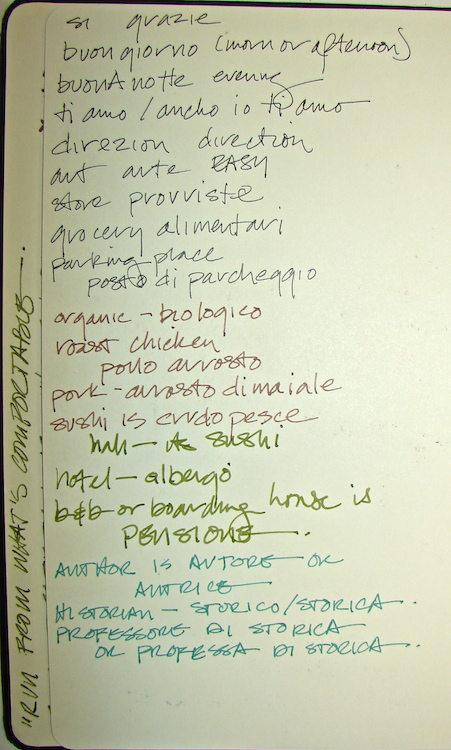 si grazie
buongiorno (morn or afternoon)
buonA notte evening
ti amo / ancho io ti amo
direzion direction
art arte EASY
store provviste
grocery alimentari
parking place
posto di parcheggio
organic - biologico
roast chicken
pollo arrosto
pork - arrosto di maiale
sushi is crudo pesce
huh - its sushi
hotel - albergo
b&b or boarding house is
PENSIONE.
AUTHOR IS AUTORE OR
AUTRICE
HISTORIAN - STORICO/STORICA.
PROFESSORE DI STORICA
OR PROFESSA DI STORICA.
"RUN FROM WHAT'S COMFORTABLE.